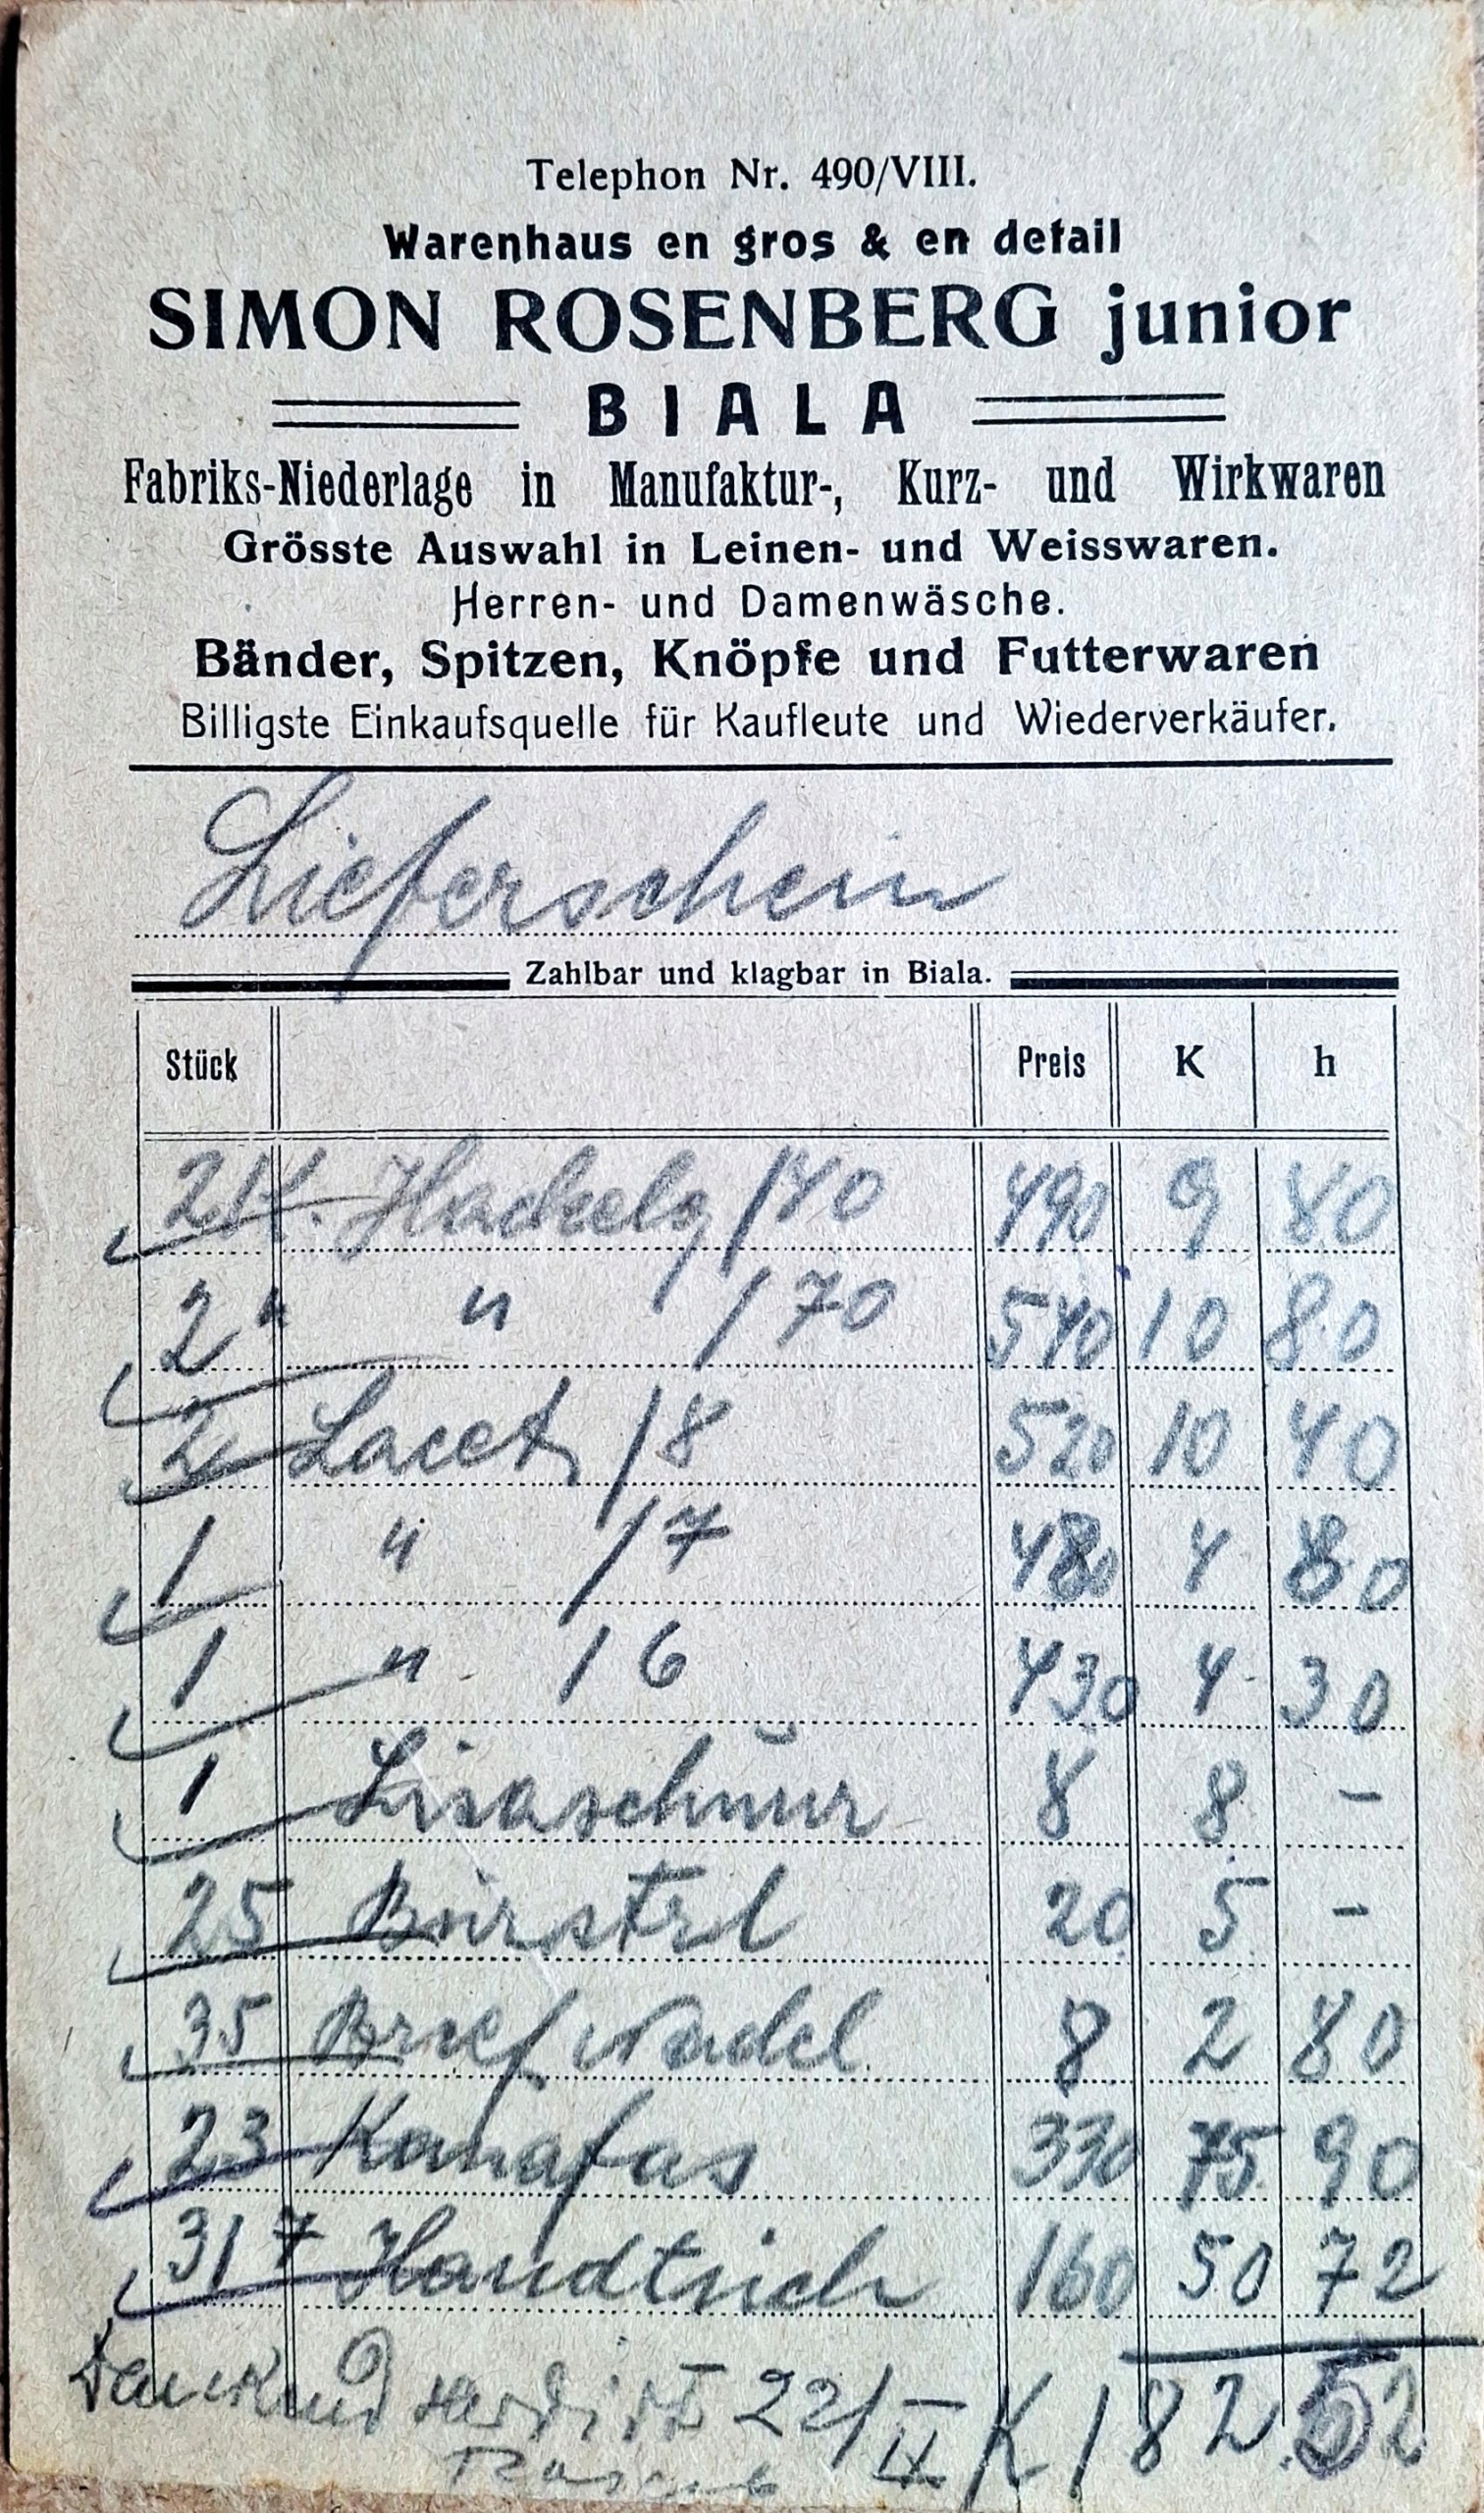 Telephon Nr. 490/VIII.
Warenhaus en gros & en detail
SIMON ROSENBERG junior
BIALA
Fabriks-Niederlage in Manufaktur-, Kurz- und Wirkwaren
Grösste Auswahl in Leinen- und Weisswaren.
Herren- und Damenwäsche.
Bänder, Spitzen, Knöpfe und Futterwaren
Billigste Einkaufsquelle für Kaufleute und Wiederverkäufer.
Lieferschein
Zahlbar und klagbar in Biala.
Stück Preis K h
490 9 80
2 " " /70 540 10 80
2 Lacet /8 520 10 40
1 " /7 480 4 80
1 " /6 430 4 30
1 8 8 -
25 20 5 -
35 Brief Nadel 8 2 80
23 Kanafas 330 75 90
31 7 Handtuch 160 50 72
Dankend 22/II K 182.52